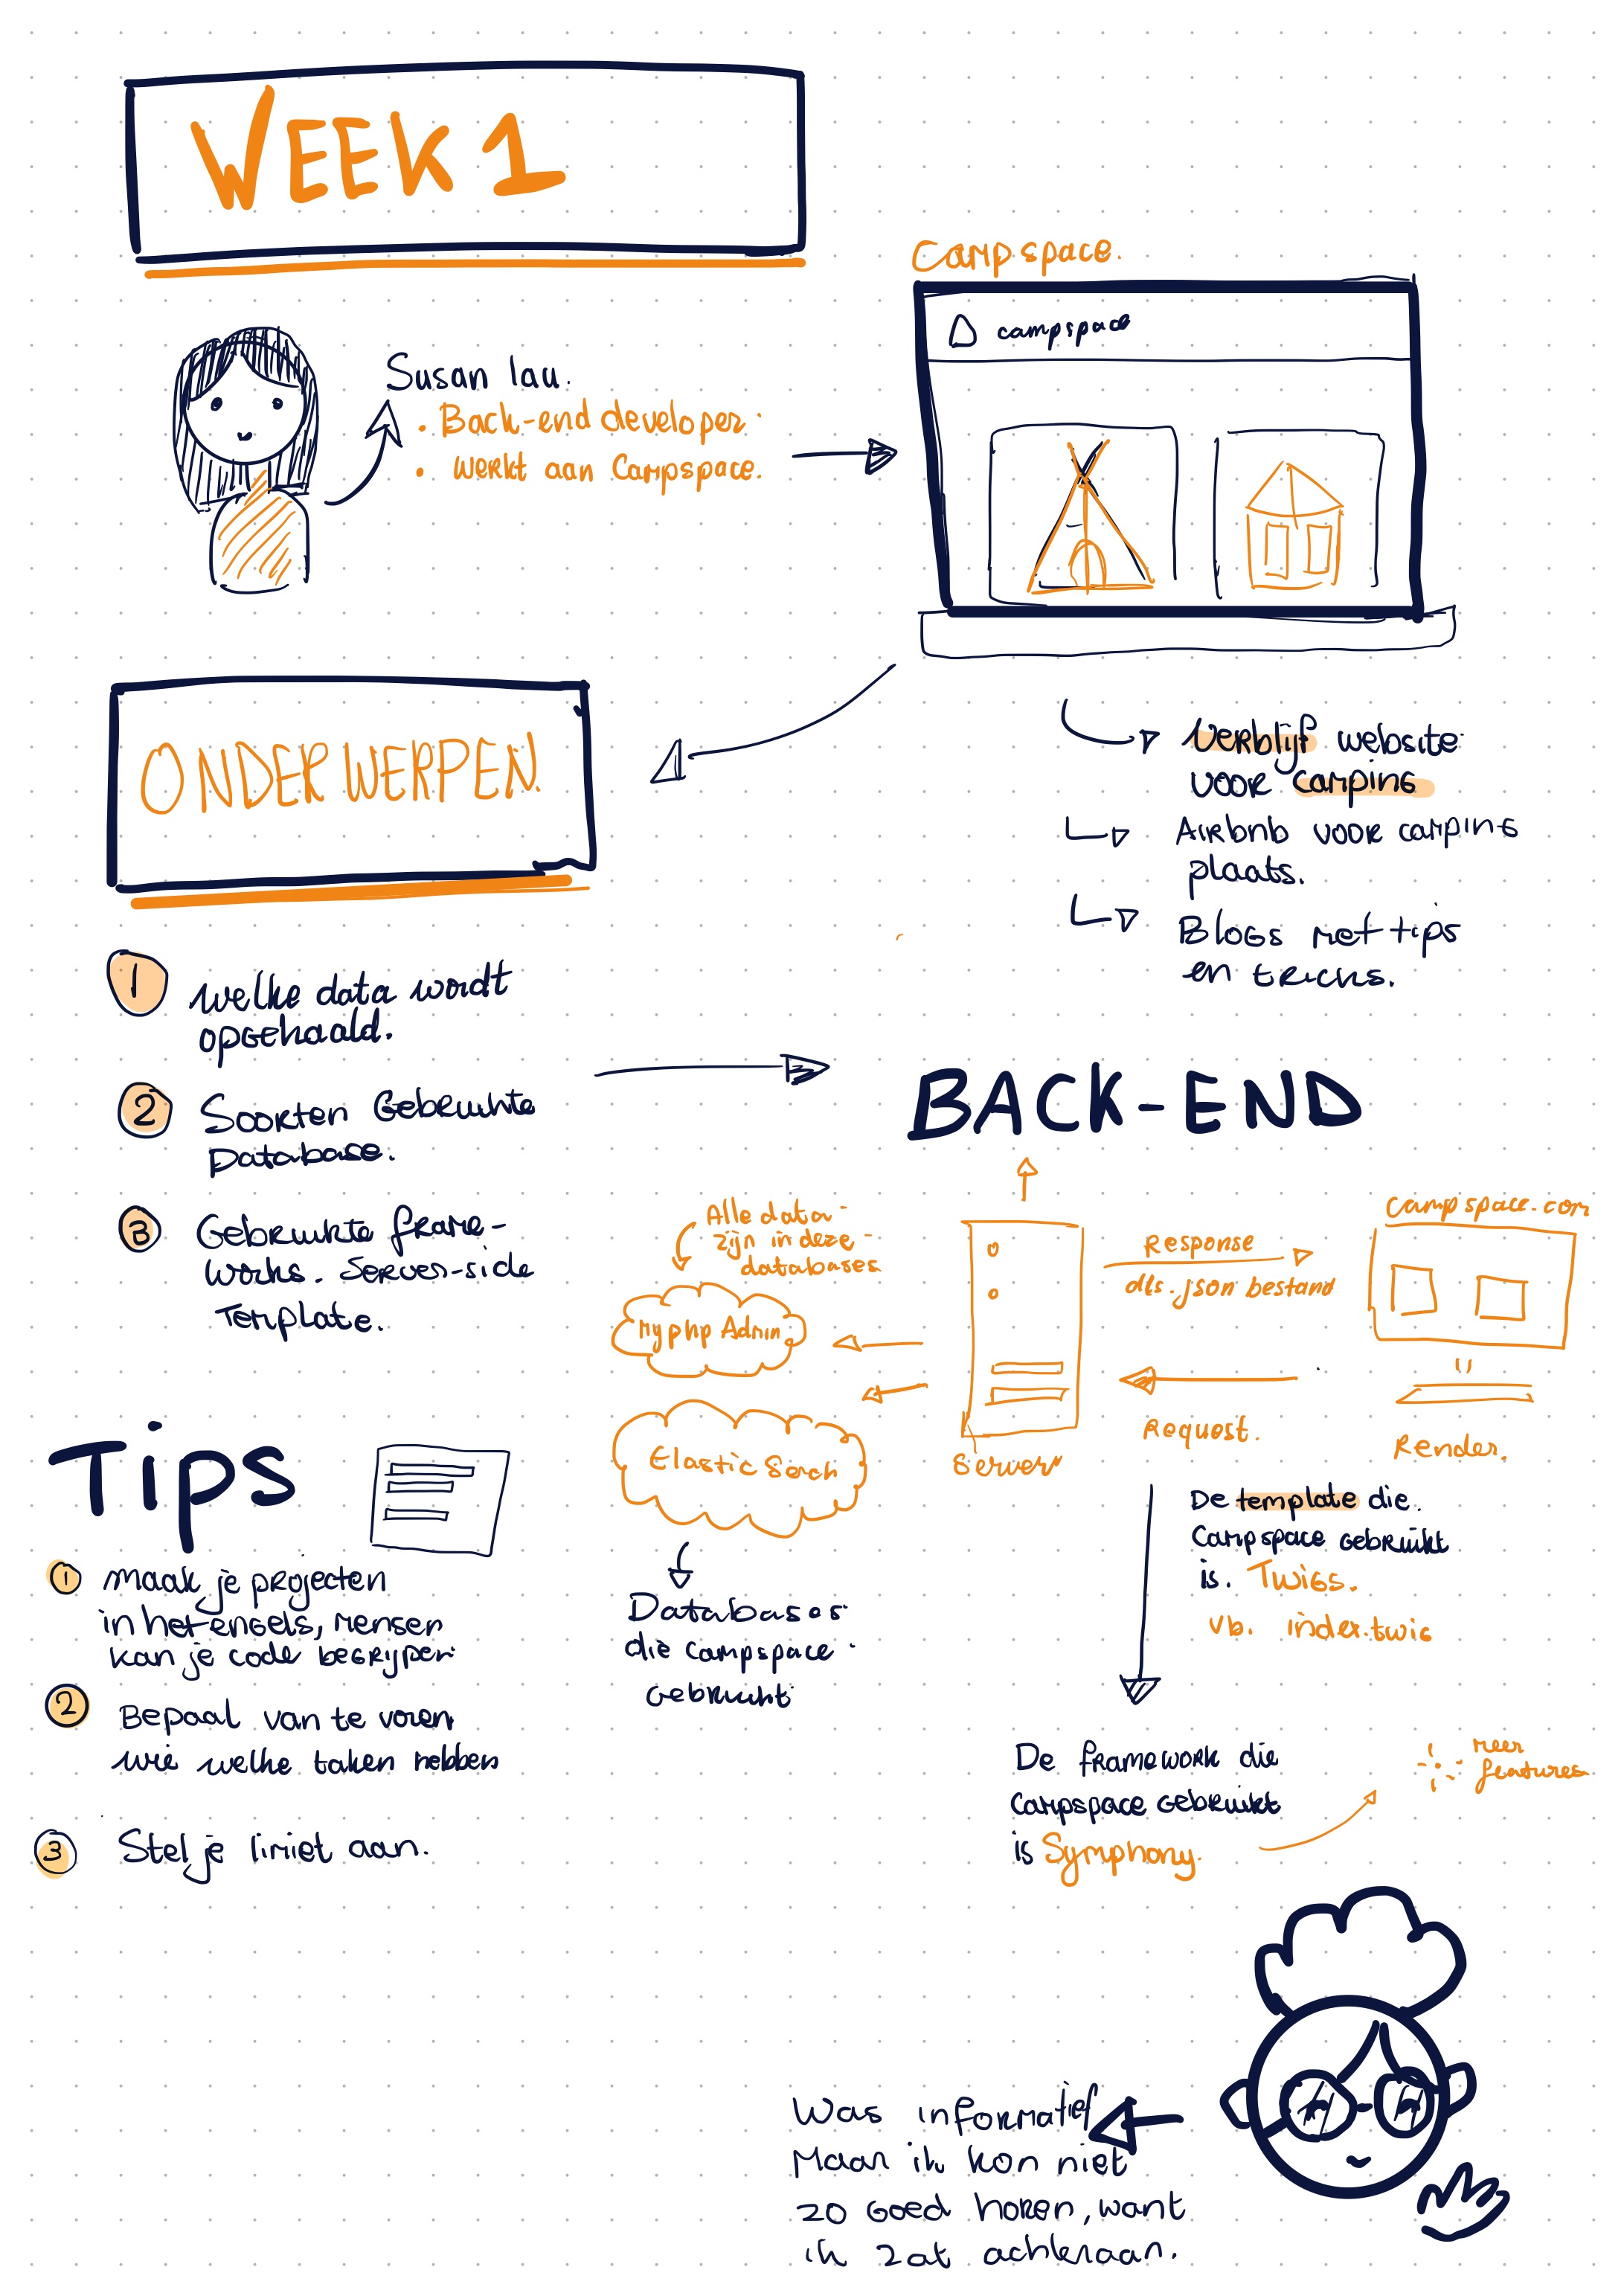 WEEK 1
Susan lau.
• Back-end developer.
• werkt aan Campspace.
Campspace.
campspace
Verblijf website
voor camping
Airbnb voor camping
plaats.
Blogs met tips
en tricks.
ONDERWERPEN.
1 welke data wordt
opgehaald.
2 Soorten Gebruikte
Database.
3 Gebruikte frame-
works. Server-side
Template.
BACK-END
Alle data
zijn in deze
databases
My php Admin
Elastic Serch
Databases
die campspace
Gebruikt
Server
Response
dls .json bestand
Request.
Campspace.com
Render.
De template die
Campspace gebruikt
is. Twigs.
vb. index.twig
De framework die
Campspace gebruikt
is Symphony.
meer
features
Tips
1 maak je projecten
in het engels, mensen
kan je code begrijpen
2 Bepaal van te voren
wie welke taken hebben
3 Stel je limiet aan.
Was informatief
Maar ik kon niet
zo goed horen, want
ik zat achteraan.